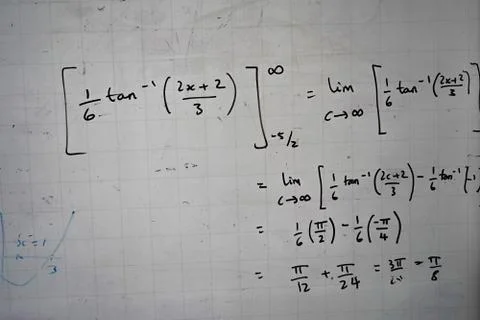 [1/6 tan⁻¹((2x+2)/3)]^∞_{-5/2} = lim_{c→∞} [1/6 tan⁻¹((2x+2)/3)]
= lim_{c→∞} [1/6 tan⁻¹((2c+2)/3) - 1/6 tan⁻¹(-1)
= 1/6(π/2) - 1/6(-π/4)
= π/12 + π/24 = 3π/24 = π/8
x = 1